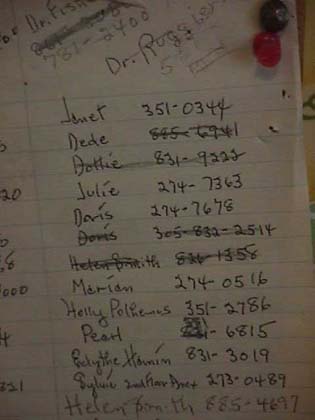 Dr. Fish
781-2400
Dr. Ruggier
Janet 351-0344
Dede 885-6941
Dottie 831-9222
Julie 274-7363
Doris 274-7678
Doris 305-832-2514
Helen Smith 831-1358
Marian 274-0516
Holly Polhemus 351-2786
Pearl 6815
Edythe Hamin 831-3019
Sylvia 2nd floor Apex 273-0489
Helen Smith 885-4697
20
000
321